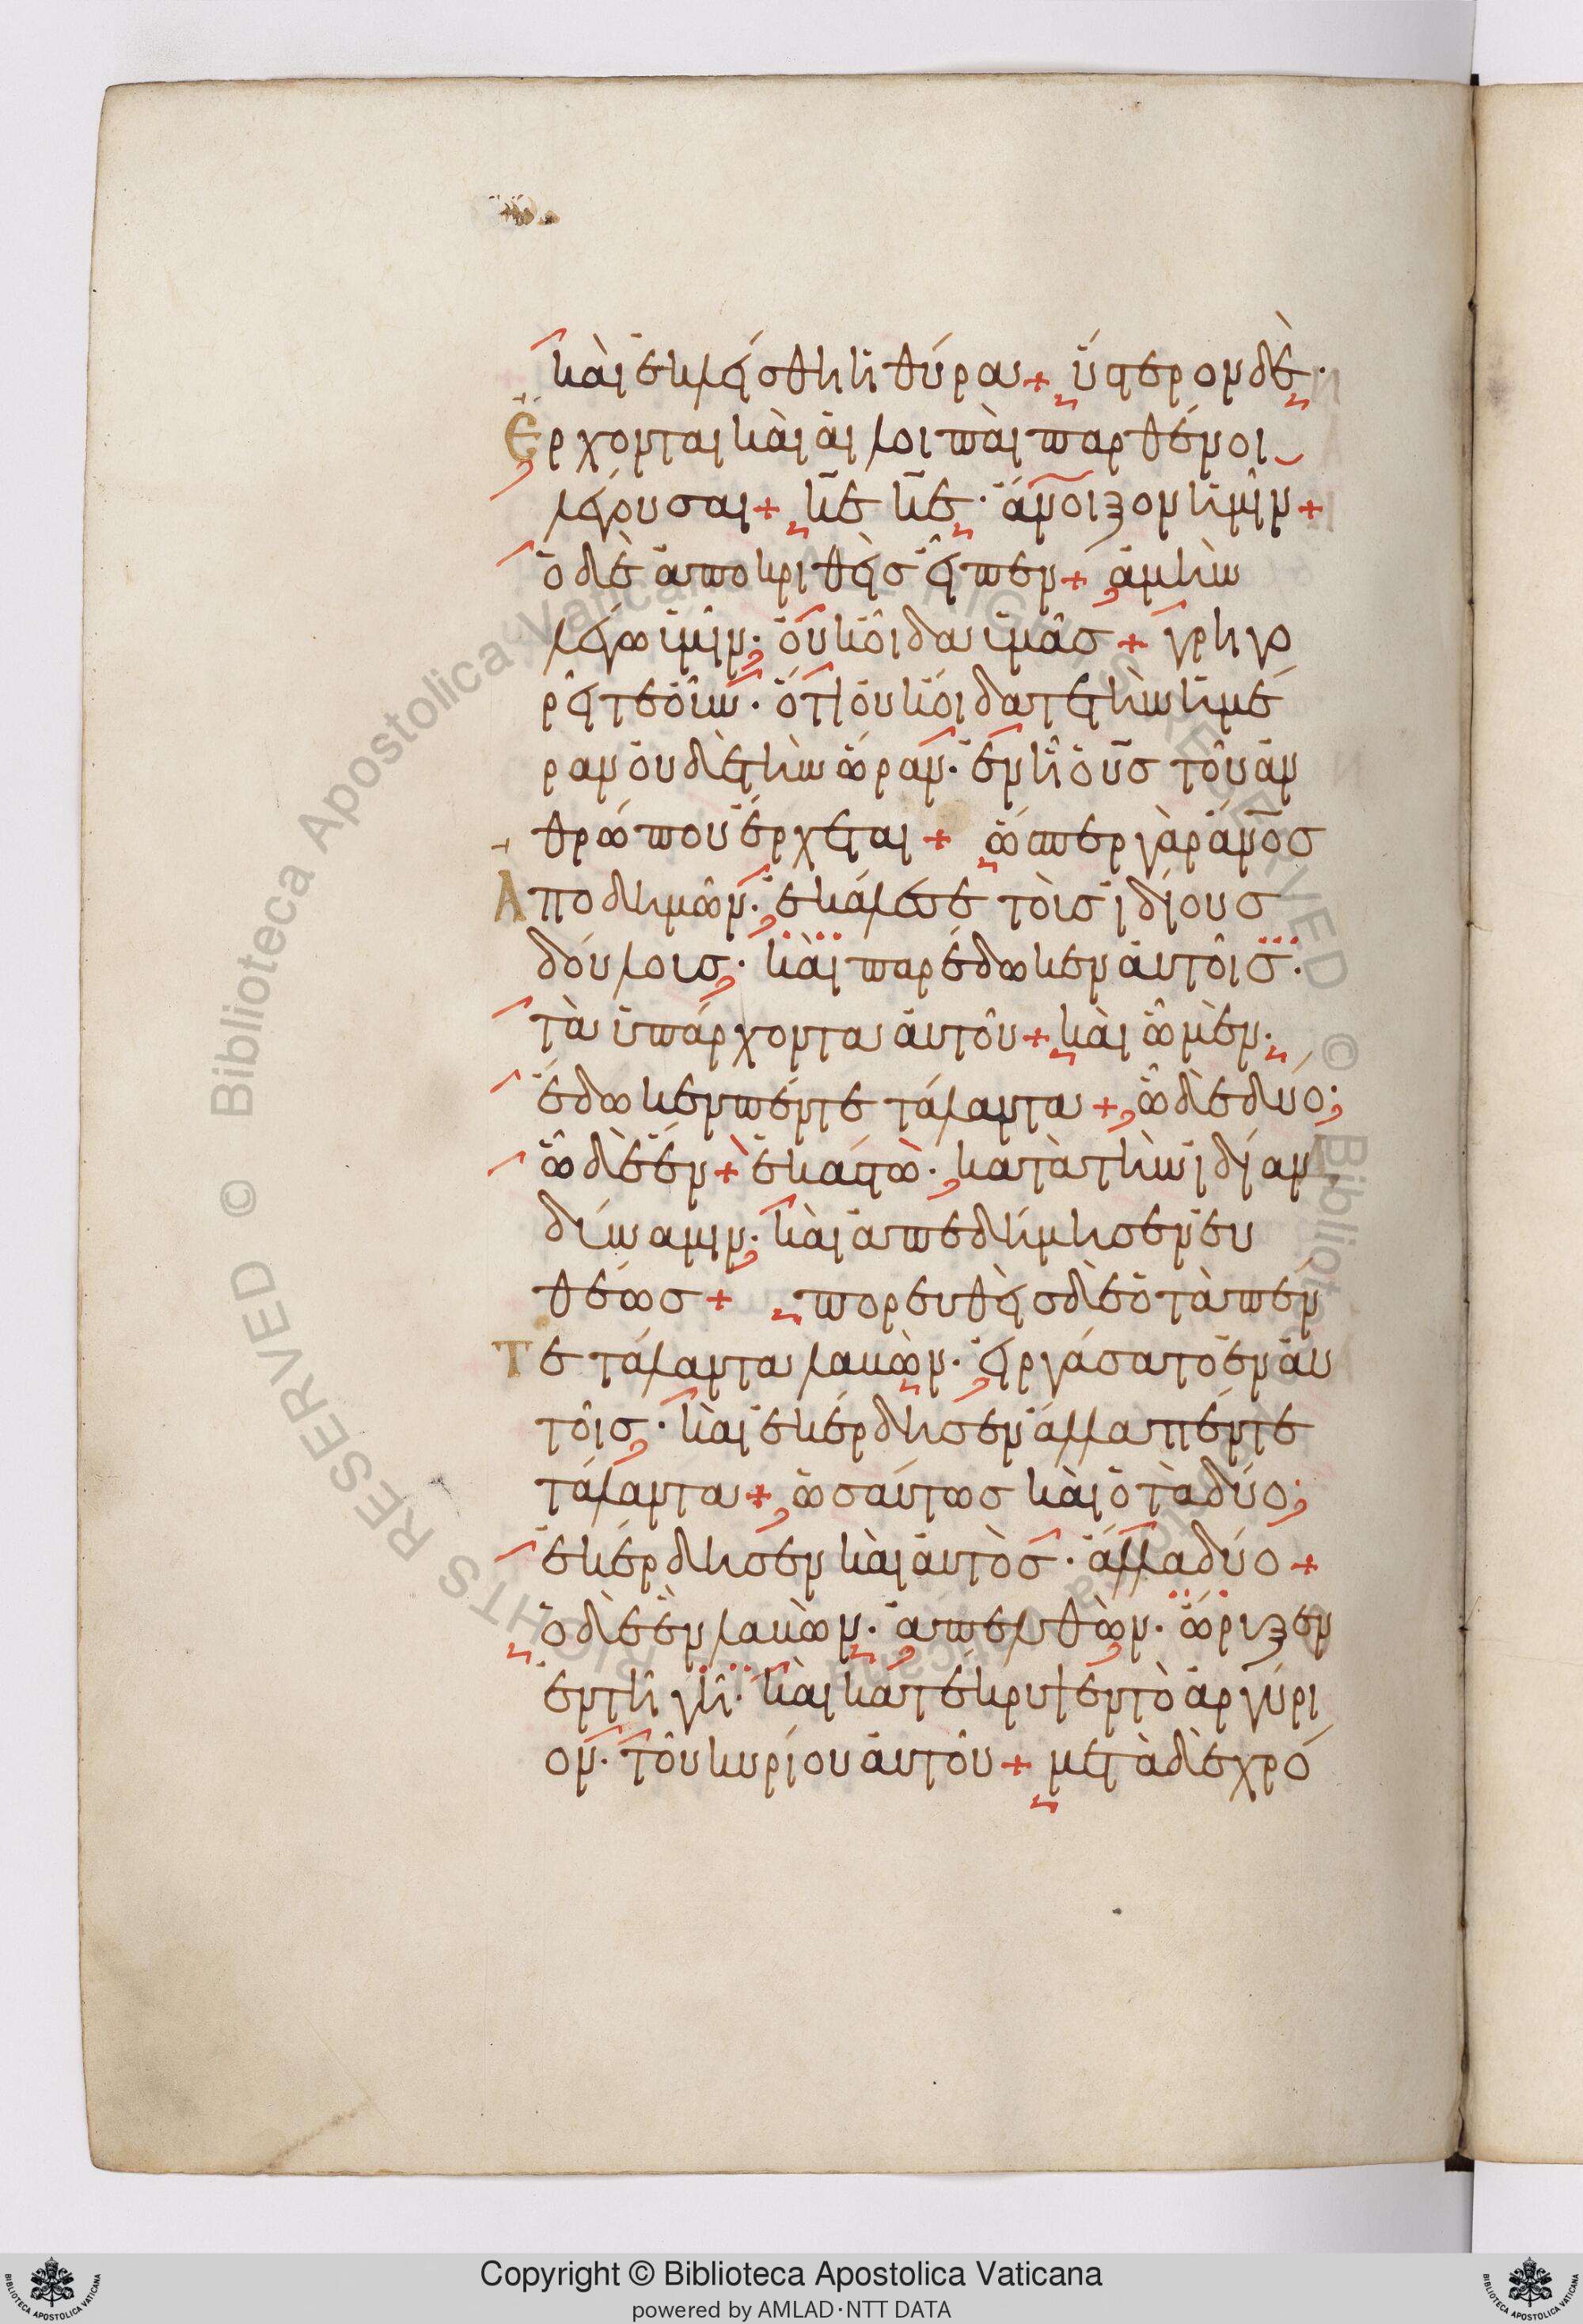 καὶ ἐκλείσθη ἡ θύρα + ὕστερον δὲ ·
Ἔρχονται καὶ αἱ λοιπαὶ παρθένοι
λέγουσαι + κ̅ε̅ κ̅ε̅ · ἄνοιξον ἡμῖν +
ὁ δὲ ἀποκριθεὶς εἶπεν + ἀμὴν
λέγω ὑμῖν · οὐκ οἶδα ὑμᾶς + γρηγο
ρεῖτε οὖν · ὅτι οὐκ οἴδατε τὴν ἡμέ
ραν οὐδὲ τὴν ὥραν · ἐν ᾗ ὁ υ̅σ̅ τοῦ ἀν
θρώπου ἔρχεται + ὥσπερ γὰρ ἀν̅ο̅σ̅
Αποδημῶν · ἐκάλεσε τοὺς ἰδίους
δούλους · καὶ παρέδωκεν αὐτοῖς ·
τὰ ὑπάρχοντα αὐτοῦ + καὶ ᾧ μὲν ·
ἔδωκεν πέντε τάλαντα + ᾧ δὲ δύο ·
ᾧ δὲ ἕν + ἑκάστω · κατὰ τὴν ἰδίαν
δύναμιν · καὶ ἀπεδήμησεν εὐ
θέως + πορευθεὶς δὲ ὁ τὰ πέν
Τε τάλαντα λαβὼν · εἰργάσατο ἐν αὐ
τοῖς · καὶ ἐκέρδησεν ἄλλα πέντε
τάλαντα + ὡσαύτως καὶ ὁ τὰ δύο ·
ἐκέρδησεν καὶ αὐτὸς · ἄλλα δύο +
ὁ δὲ ἓν λαβὼν · ἀπελθὼν · ὤρυξεν
ἐν τῇ γῇ · καὶ κατέκρυψεν τὸ ἀργύρι
ον · τοῦ κυρίου αὐτοῦ + μετὰ δὲ χρό
Copyright © Biblioteca Apostolica Vaticana
powered by AMLAD·NTT DATA